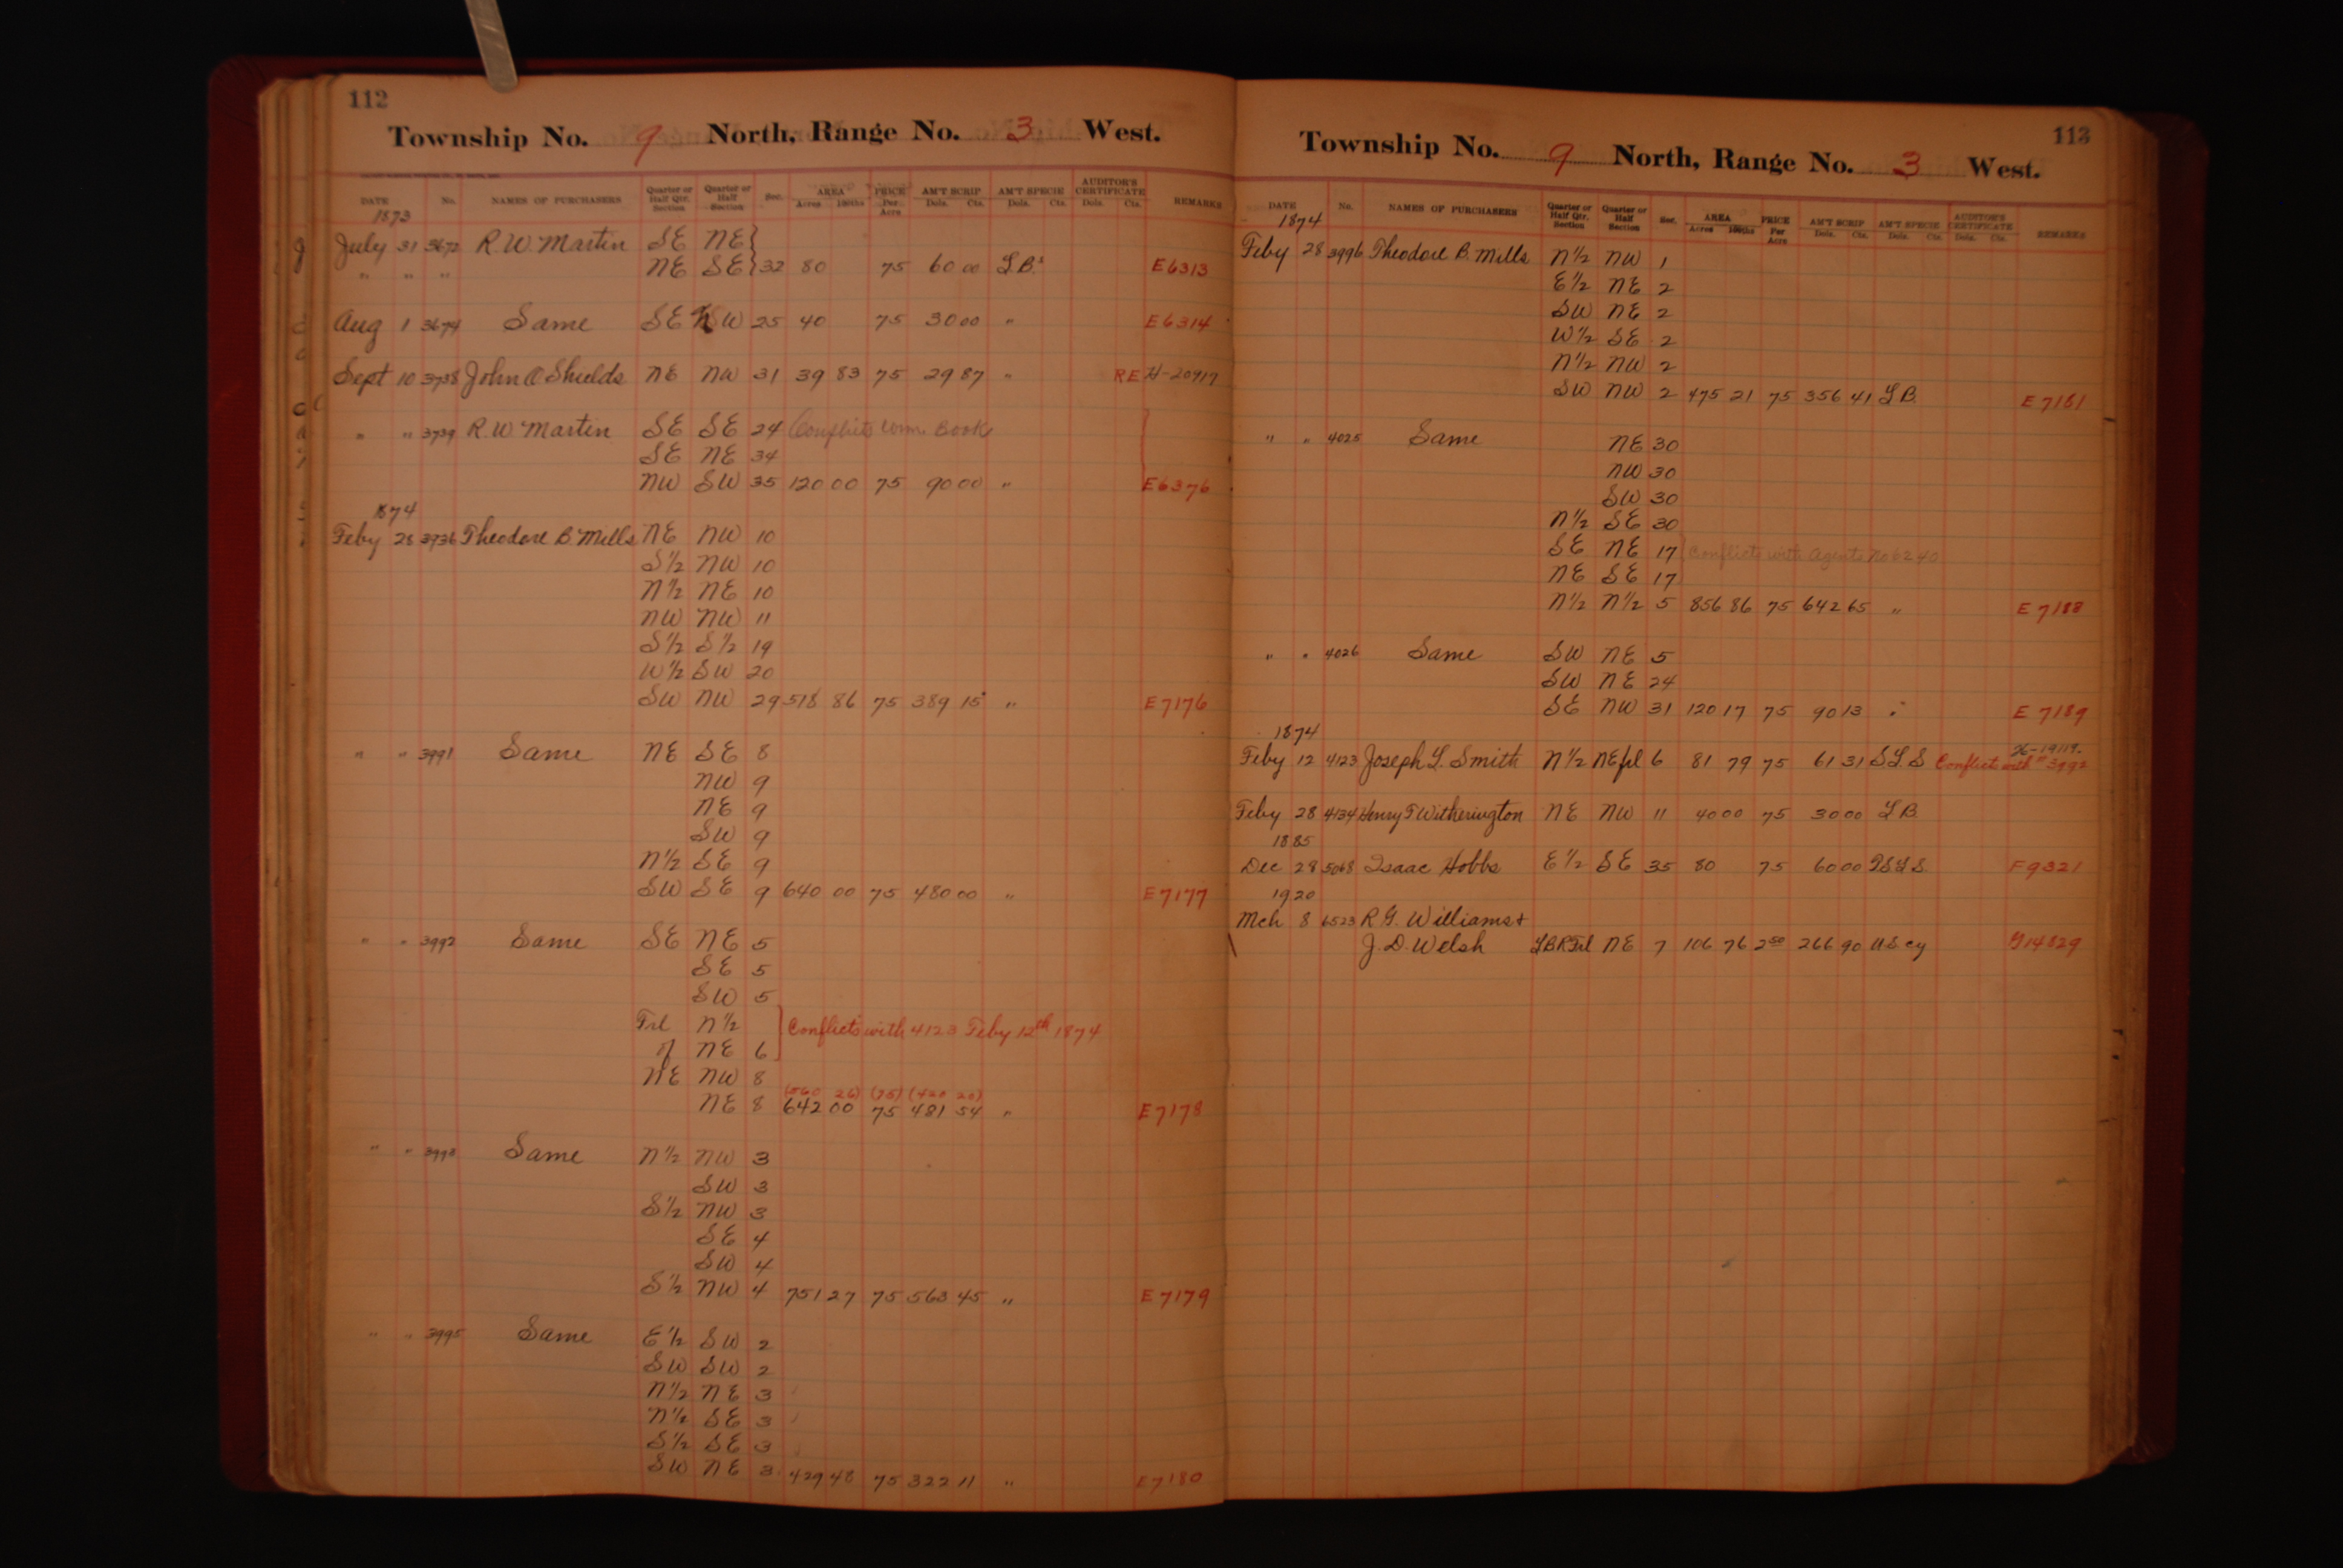 112
Township No. 9 North, Range No. 3 West.
DATE No. NAMES OF PURCHASERS Quarter or Half Qtr. Section Quarter or Half Section Sec. AREA Acres 100ths PRICE Per Acre AM'T SCRIP Dols. Cts. AM'T SPECIE Dols. Cts. AUDITOR'S CERTIFICATE Dols. Cts. REMARKS
1873
July 31 3672 R. W. Martin SE NE
" " " NE SE 32 80 75 60 00 L.B.s E6313
Aug 1 3674 Same SE SW 25 40 75 30 00 " E6314
Sept 10 3738 John A Shields NE NW 31 39 83 75 29 87 " RE H-20917
" " 3739 R. W. Martin SE SE 24 Conflicts Book
SE NE 34
NW SW 35 120 00 75 90 00 " E6376
1874
Feby 28 3936 Theodore B. Mills NE NW 10
S½ NW 10
N½ NE 10
NW NW 11
S½ S½ 19
W½ SW 20
SW NW 29 518 86 75 389 15 " E7176
" " 3991 Same NE SE 8
NW 9
NE 9
SW 9
N½ SE 9
SW SE 9 640 00 75 480 00 " E7177
" " 3992 Same SE NE 5
SE 5
SW 5
Frl N½
of NE 6 Conflicts with 4123 Feby 12th 1874
NE NW 8
(560 26) (75) (420 20)
NE 8 642 00 75 481 54 " E7178
" " 3993 Same N½ NW 3
SW 3
S½ NW 3
SE 4
SW 4
S½ NW 4 751 27 75 563 45 " E7179
" " 3995 Same E½ SW 2
SW SW 2
N½ NE 3
N½ SE 3
S½ SE 3
SW NE 3 429 48 75 322 11 " E7180
113
Township No. 9 North, Range No. 3 West.
DATE No. NAMES OF PURCHASERS Quarter or Half Qtr. Section Quarter or Half Section Sec. AREA Acres 100ths PRICE Per Acre AM'T SCRIP Dols. Cts. AM'T SPECIE Dols. Cts. AUDITOR'S CERTIFICATE Dols. Cts. REMARKS
1874
Feby 28 3996 Theodore B. Mills N½ NW 1
E½ NE 2
SW NE 2
W½ SE 2
N½ NW 2
SW NW 2 475 21 75 356 41 L B. E7181
" " 4025 Same NE 30
NW 30
SW 30
N½ SE 30
SE NE 17 Conflicts with Agents No 6240
NE SE 17
N½ N½ 5 856 86 75 642 65 " E7188
" " 4026 Same SW NE 5
SW NE 24
SE NW 31 120 17 75 90 13 " E7189
1874
Feby 12 4123 Joseph L. Smith N½ NE frl 6 81 79 75 61 31 S L S Conflicts with # 3992
Feby 28 4134 Henry T Witherington NE NW 11 40 00 75 30 00 L B.
1885
Dec 28 5068 Isaac Hobbs E½ SE 35 80 75 60 00 F9321
1920
Mch 8 6523 R G. Williams &
J. D. Welsh LBRFrl NE 7 106 76 2 50 266 90 US cy G14829